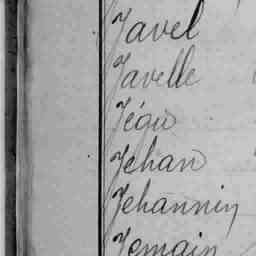 Javel
Javelle
Jégu
Jehan
Jehannin
Jemain